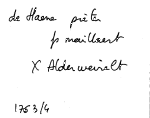 de Haene prêtre
p maillaert
X Alderweirelt
1753/4